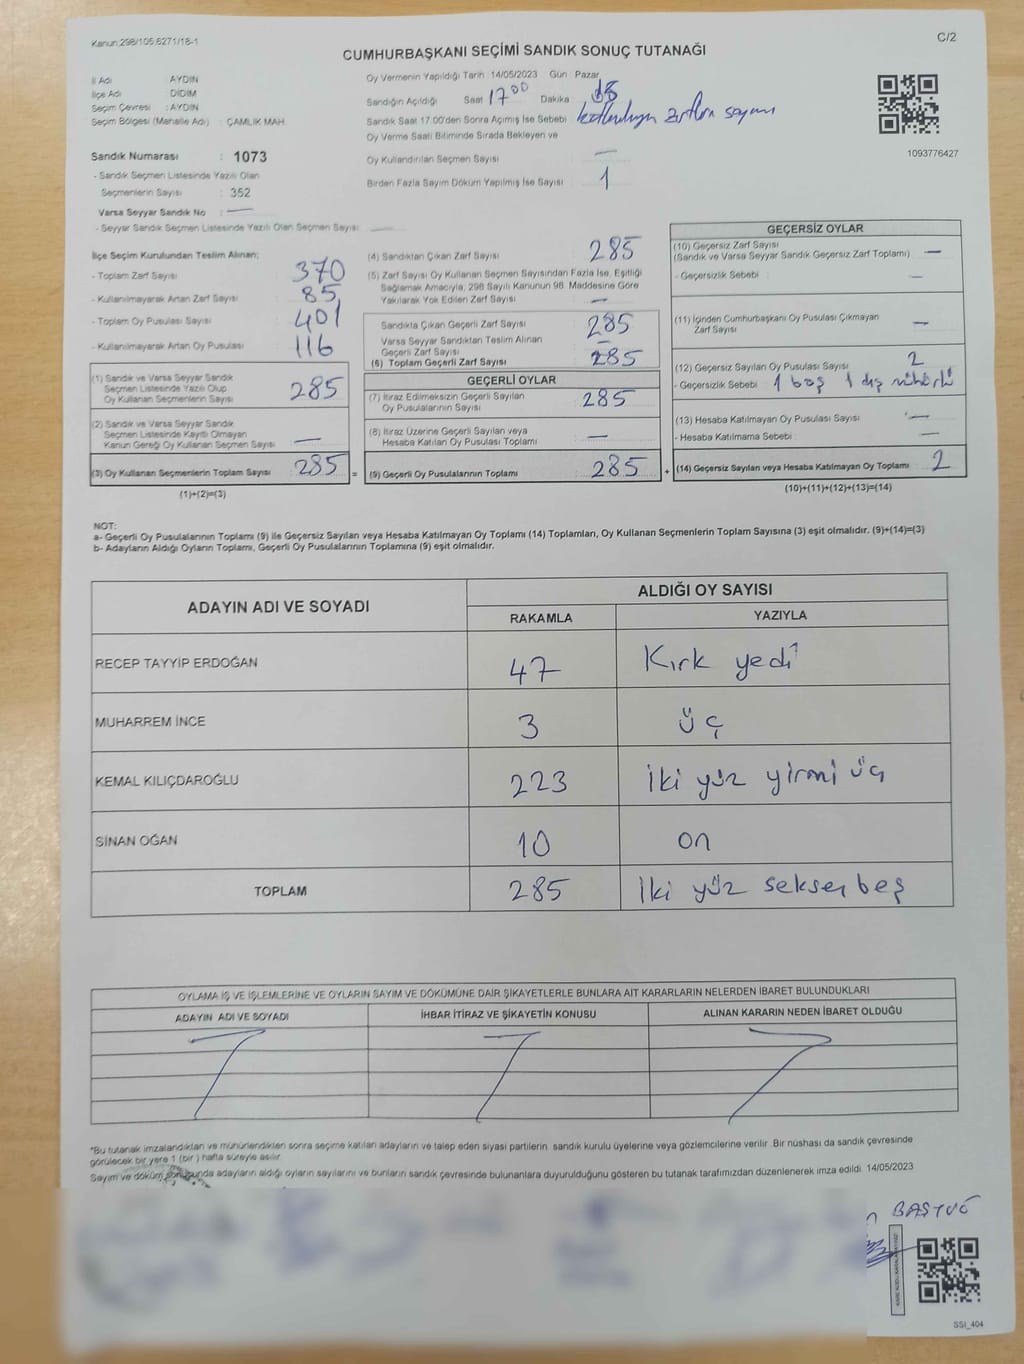 Kanun;298/105;6271/18-1
C/2
CUMHURBAŞKANI SEÇİMİ SANDIK SONUÇ TUTANAĞI
İl Adı AYDIN
İlçe Adı DİDİM
Seçim Çevresi : AYDIN
Seçim Bölgesi (Mahalle Adı) : ÇAMLIK MAH.
Sandık Numarası : 1073
- Sandık Seçmen Listesinde Yazılı Olan
Seçmenlerin Sayısı : 352
Varsa Seyyar Sandık No : —
- Seyyar Sandık Seçmen Listesinde Yazılı Olan Seçmen Sayısı: —
Oy Vermenin Yapıldığı Tarih : 14/05/2023 Gün : Pazar
Sandığın Açıldığı Saat 17:00 Dakika
Sandık Saat 17.00'den Sonra Açımış İse Sebebi zarfların sayımı
Oy Verme Saati Bitiminde Sırada Bekleyen ve
Oy Kullandırılan Seçmen Sayısı —
Birden Fazla Sayım Döküm Yapılmış İse Sayısı 1
1093776427
İlçe Seçim Kurulundan Teslim Alınan;
- Toplam Zarf Sayısı 370
- Kullanılmayarak Artan Zarf Sayısı 85
- Toplam Oy Pusulası Sayısı 401
- Kullanılmayarak Artan Oy Pusulası 116
(1) Sandık ve Varsa Seyyar Sandık
Seçmen Listesinde Yazılı Olup
Oy Kullanan Seçmenlerin Sayısı 285
(2) Sandık ve Varsa Seyyar Sandık
Seçmen Listesinde Kayıtlı Olmayan
Kanun Gereği Oy Kullanan Seçmen Sayısı —
(3) Oy Kullanan Seçmenlerin Toplam Sayısı 285 =
(1)+(2)=(3)
(4) Sandıktan Çıkan Zarf Sayısı 285
(5) Zarf Sayısı Oy Kullanan Seçmen Sayısından Fazla İse, Eşitliği
Sağlamak Amacıyla, 298 Sayılı Kanunun 98. Maddesine Göre
Yakılarak Yok Edilen Zarf Sayısı —
Sandıkta Çıkan Geçerli Zarf Sayısı 285
Varsa Seyyar Sandıktan Teslim Alınan
Geçerli Zarf Sayısı —
(6) Toplam Geçerli Zarf Sayısı 285
GEÇERLİ OYLAR
(7) İtiraz Edilmeksizin Geçerli Sayılan
Oy Pusulalarının Sayısı 285
(8) İtiraz Üzerine Geçerli Sayılan veya
Hesaba Katılan Oy Pusulası Toplamı —
(9) Geçerli Oy Pusulalarının Toplamı 285 +
GEÇERSİZ OYLAR
(10) Geçersiz Zarf Sayısı
(Sandık ve Varsa Seyyar Sandık Geçersiz Zarf Toplamı) —
- Geçersizlik Sebebi : —
(11) İçinden Cumhurbaşkanı Oy Pusulası Çıkmayan
Zarf Sayısı —
(12) Geçersiz Sayılan Oy Pusulası Sayısı 2
- Geçersizlik Sebebi 1 boş 1 dış mühürlü
(13) Hesaba Katılmayan Oy Pusulası Sayısı —
- Hesaba Katılmama Sebebi : —
(14) Geçersiz Sayılan veya Hesaba Katılmayan Oy Toplamı 2
(10)+(11)+(12)+(13)=(14)
NOT:
a- Geçerli Oy Pusulalarının Toplamı (9) ile Geçersiz Sayılan veya Hesaba Katılmayan Oy Toplamı (14) Toplamları, Oy Kullanan Seçmenlerin Toplam Sayısına (3) eşit olmalıdır. (9)+(14)=(3)
b- Adayların Aldığı Oyların Toplamı, Geçerli Oy Pusulalarının Toplamına (9) eşit olmalıdır.
ADAYIN ADI VE SOYADI ALDIĞI OY SAYISI
RAKAMLA YAZIYLA
RECEP TAYYİP ERDOĞAN 47 Kırk yedi
MUHARREM İNCE 3 üç
KEMAL KILIÇDAROĞLU 223 iki yüz yirmi üç
SİNAN OĞAN 10 on
TOPLAM 285 iki yüz seksen beş
OYLAMA İŞ VE İŞLEMLERİNE VE OYLARIN SAYIM VE DÖKÜMÜNE DAİR ŞİKAYETLERLE BUNLARA AİT KARARLARIN NELERDEN İBARET BULUNDUKLARI
ADAYIN ADI VE SOYADI İHBAR İTİRAZ VE ŞİKAYETİN KONUSU ALINAN KARARIN NEDEN İBARET OLDUĞU
*Bu tutanak imzalandıktan ve mühürlendikten sonra seçime katılan adayların ve talep eden siyasi partilerin sandık kurulu üyelerine veya gözlemcilerine verilir. Bir nüshası da sandık çevresinde
görülecek bir yere 1 (bir) hafta süreyle asılır.
Sayım ve döküm sonucunda adayların aldığı oyların sayılarını ve bunların sandık çevresinde bulunanlara duyurulduğunu gösteren bu tutanak tarafımızdan düzenlenerek imza edildi. 14/05/2023
SSI_404